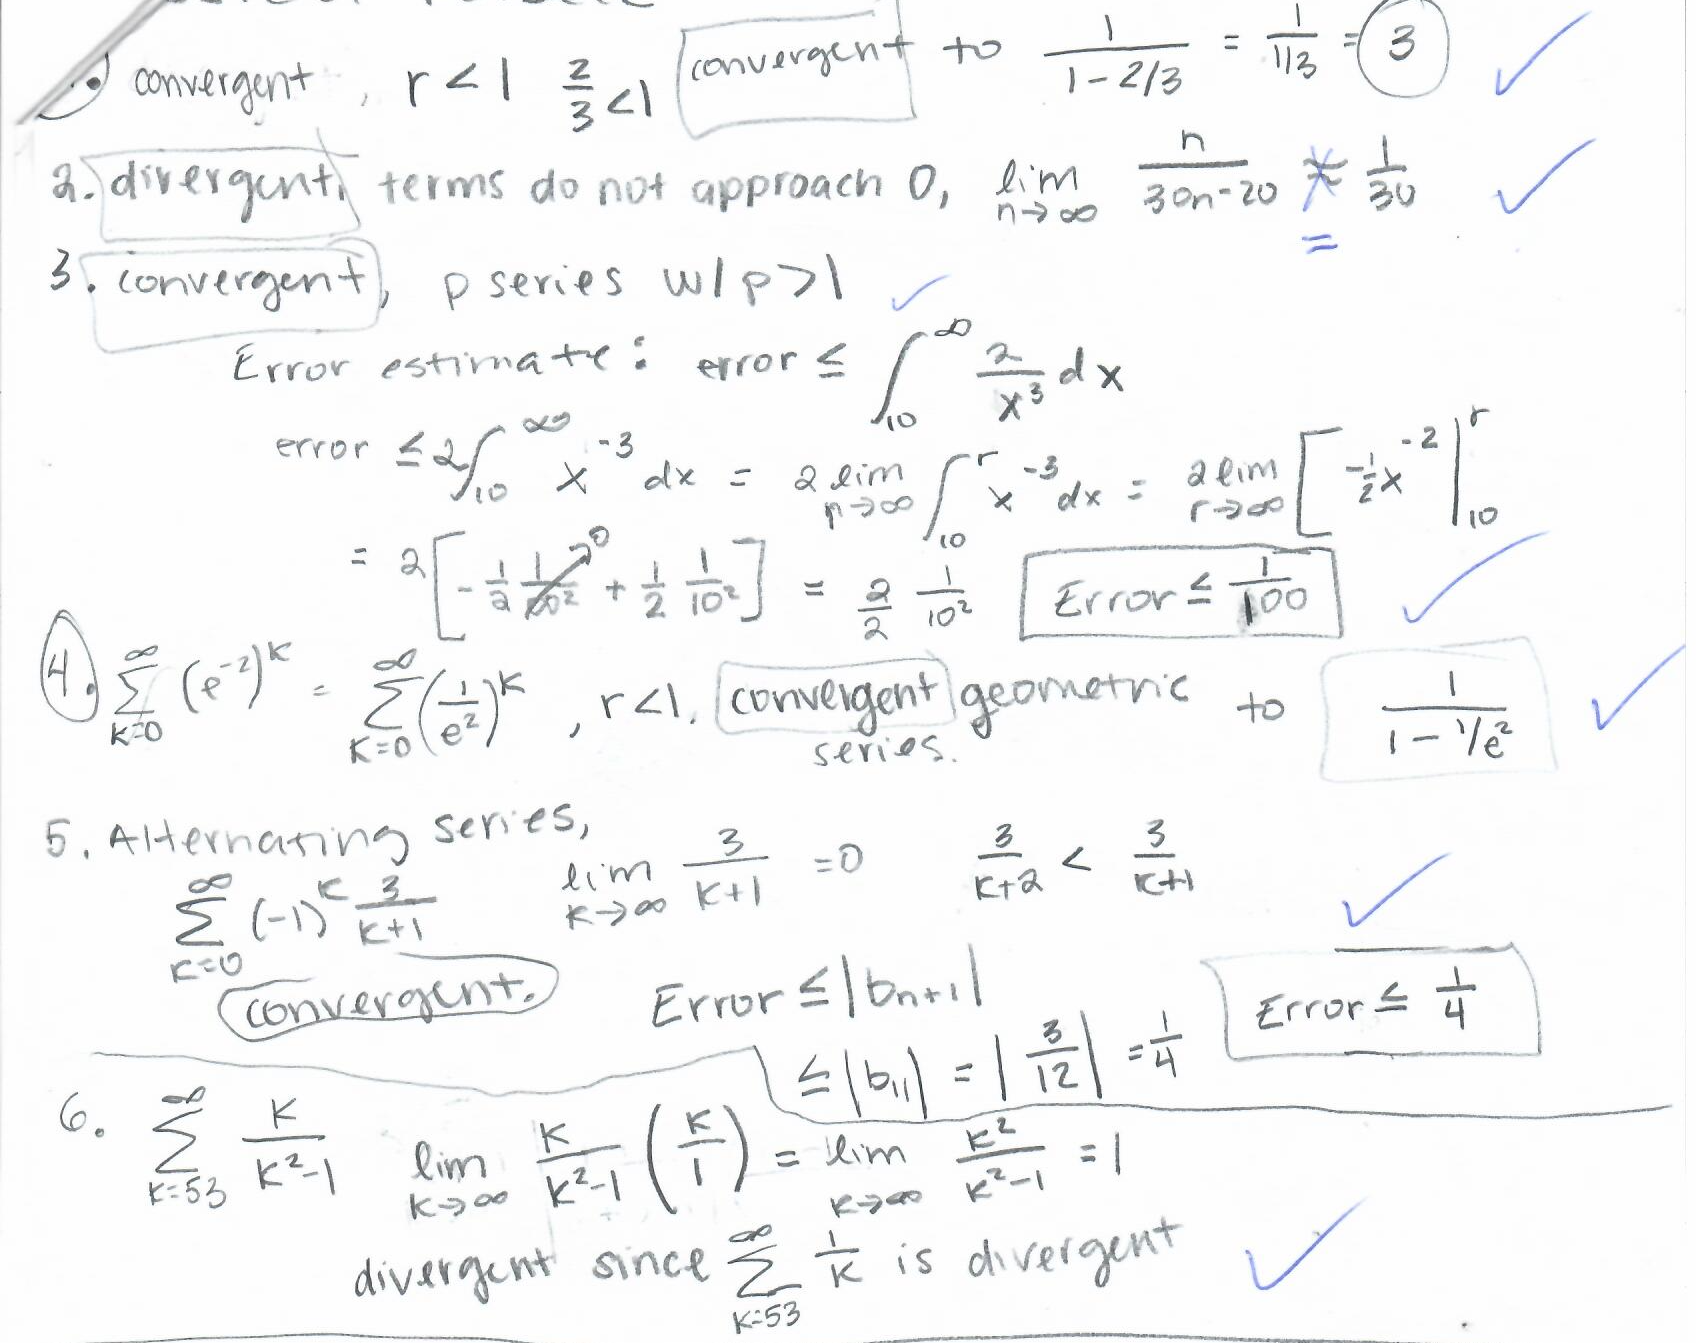 . convergent, r < 1 2/3 < 1 convergent to 1/(1 - 2/3) = 1/(1/3) = 3
2. divergent, terms do not approach 0, lim n→∞ n/(30n-20) ≈ 1/30
=
3. convergent, p series w/ p > 1
Error estimate: error ≤ ∫_10^∞ 2/x^3 dx
error ≤ 2∫_10^∞ x^-3 dx = 2 lim n→∞ ∫_10^r x^-3 dx = 2 lim r→∞ [-1/2 x^-2 |_10^r
= 2[-1/2 1/∞^2 →0 + 1/2 1/10^2] = 2/2 1/10^2 Error ≤ 1/100
4. ∑_{k=0}^∞ (e^-2)^k = ∑_{k=0}^∞ (1/e^2)^k, r < 1. convergent geometric to 1/(1 - 1/e^2)
series.
5. Alternating series,
∑_{k=0}^∞ (-1)^k 3/(k+1) lim k→∞ 3/(k+1) = 0 3/(k+2) < 3/(k+1)
convergent. Error ≤ |b_{n+1}| Error ≤ 1/4
≤ |b_11| = |3/12| = 1/4
6. ∑_{k=53}^∞ k/(k^2-1) lim k→∞ k/(k^2-1) (k/1) = lim k→∞ k^2/(k^2-1) = 1
divergent since ∑_{k=53}^∞ 1/k is divergent